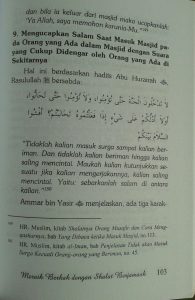 dan bila ia keluar dari masjid maka ucapkanlah:
'Ya Allah, saya memohon karunia-Mu.'"
9. Mengucapkan Salam Saat Masuk Masjid pa-
da Orang yang Ada dalam Masjid dengan Suara
yang Cukup Didengar oleh Orang yang Ada di
Sekitarnya
Hal ini berdasarkan hadits Abu Hurairah
Rasulullah ﷺ bersabda:
لَا تَدْخُلُونَ الْجَنَّةَ حَتَّى تُؤْمِنُوا، وَلَا تُؤْمِنُوا حَتَّى تَحَابُّوا،
أَوَلَا أَدُلُّكُمْ عَلَى شَيْءٍ إِذَا فَعَلْتُمُوهُ تَحَابَبْتُمْ؟ أَفْشُوا
السَّلَامَ بَيْنَكُمْ
"Tidaklah kalian masuk surga sampai kalian ber-
iman. Dan tidaklah kalian beriman hingga kalian
saling mencintai. Maukah kalian kutunjukkan se-
suatu jika kalian mengerjakannya, kalian saling
mencintai. Yaitu: sebarkanlah salam di antara
kalian."
Ammar bin Yasir menjelaskan, ada tiga karak-
HR. Muslim, kitab Shalatnya Orang Musafir dan Cara Meng-
qasharnya, bab Yang Dibaca ketika Masuk Masjid, no.
HR. Muslim, kitab al-Iman, bab Penjelasan Tidak akan Masuk
Surga Kecuali Orang-orang yang Beriman, no. 45.
Meraih Berkah dengan Shalat Berjamaah
103